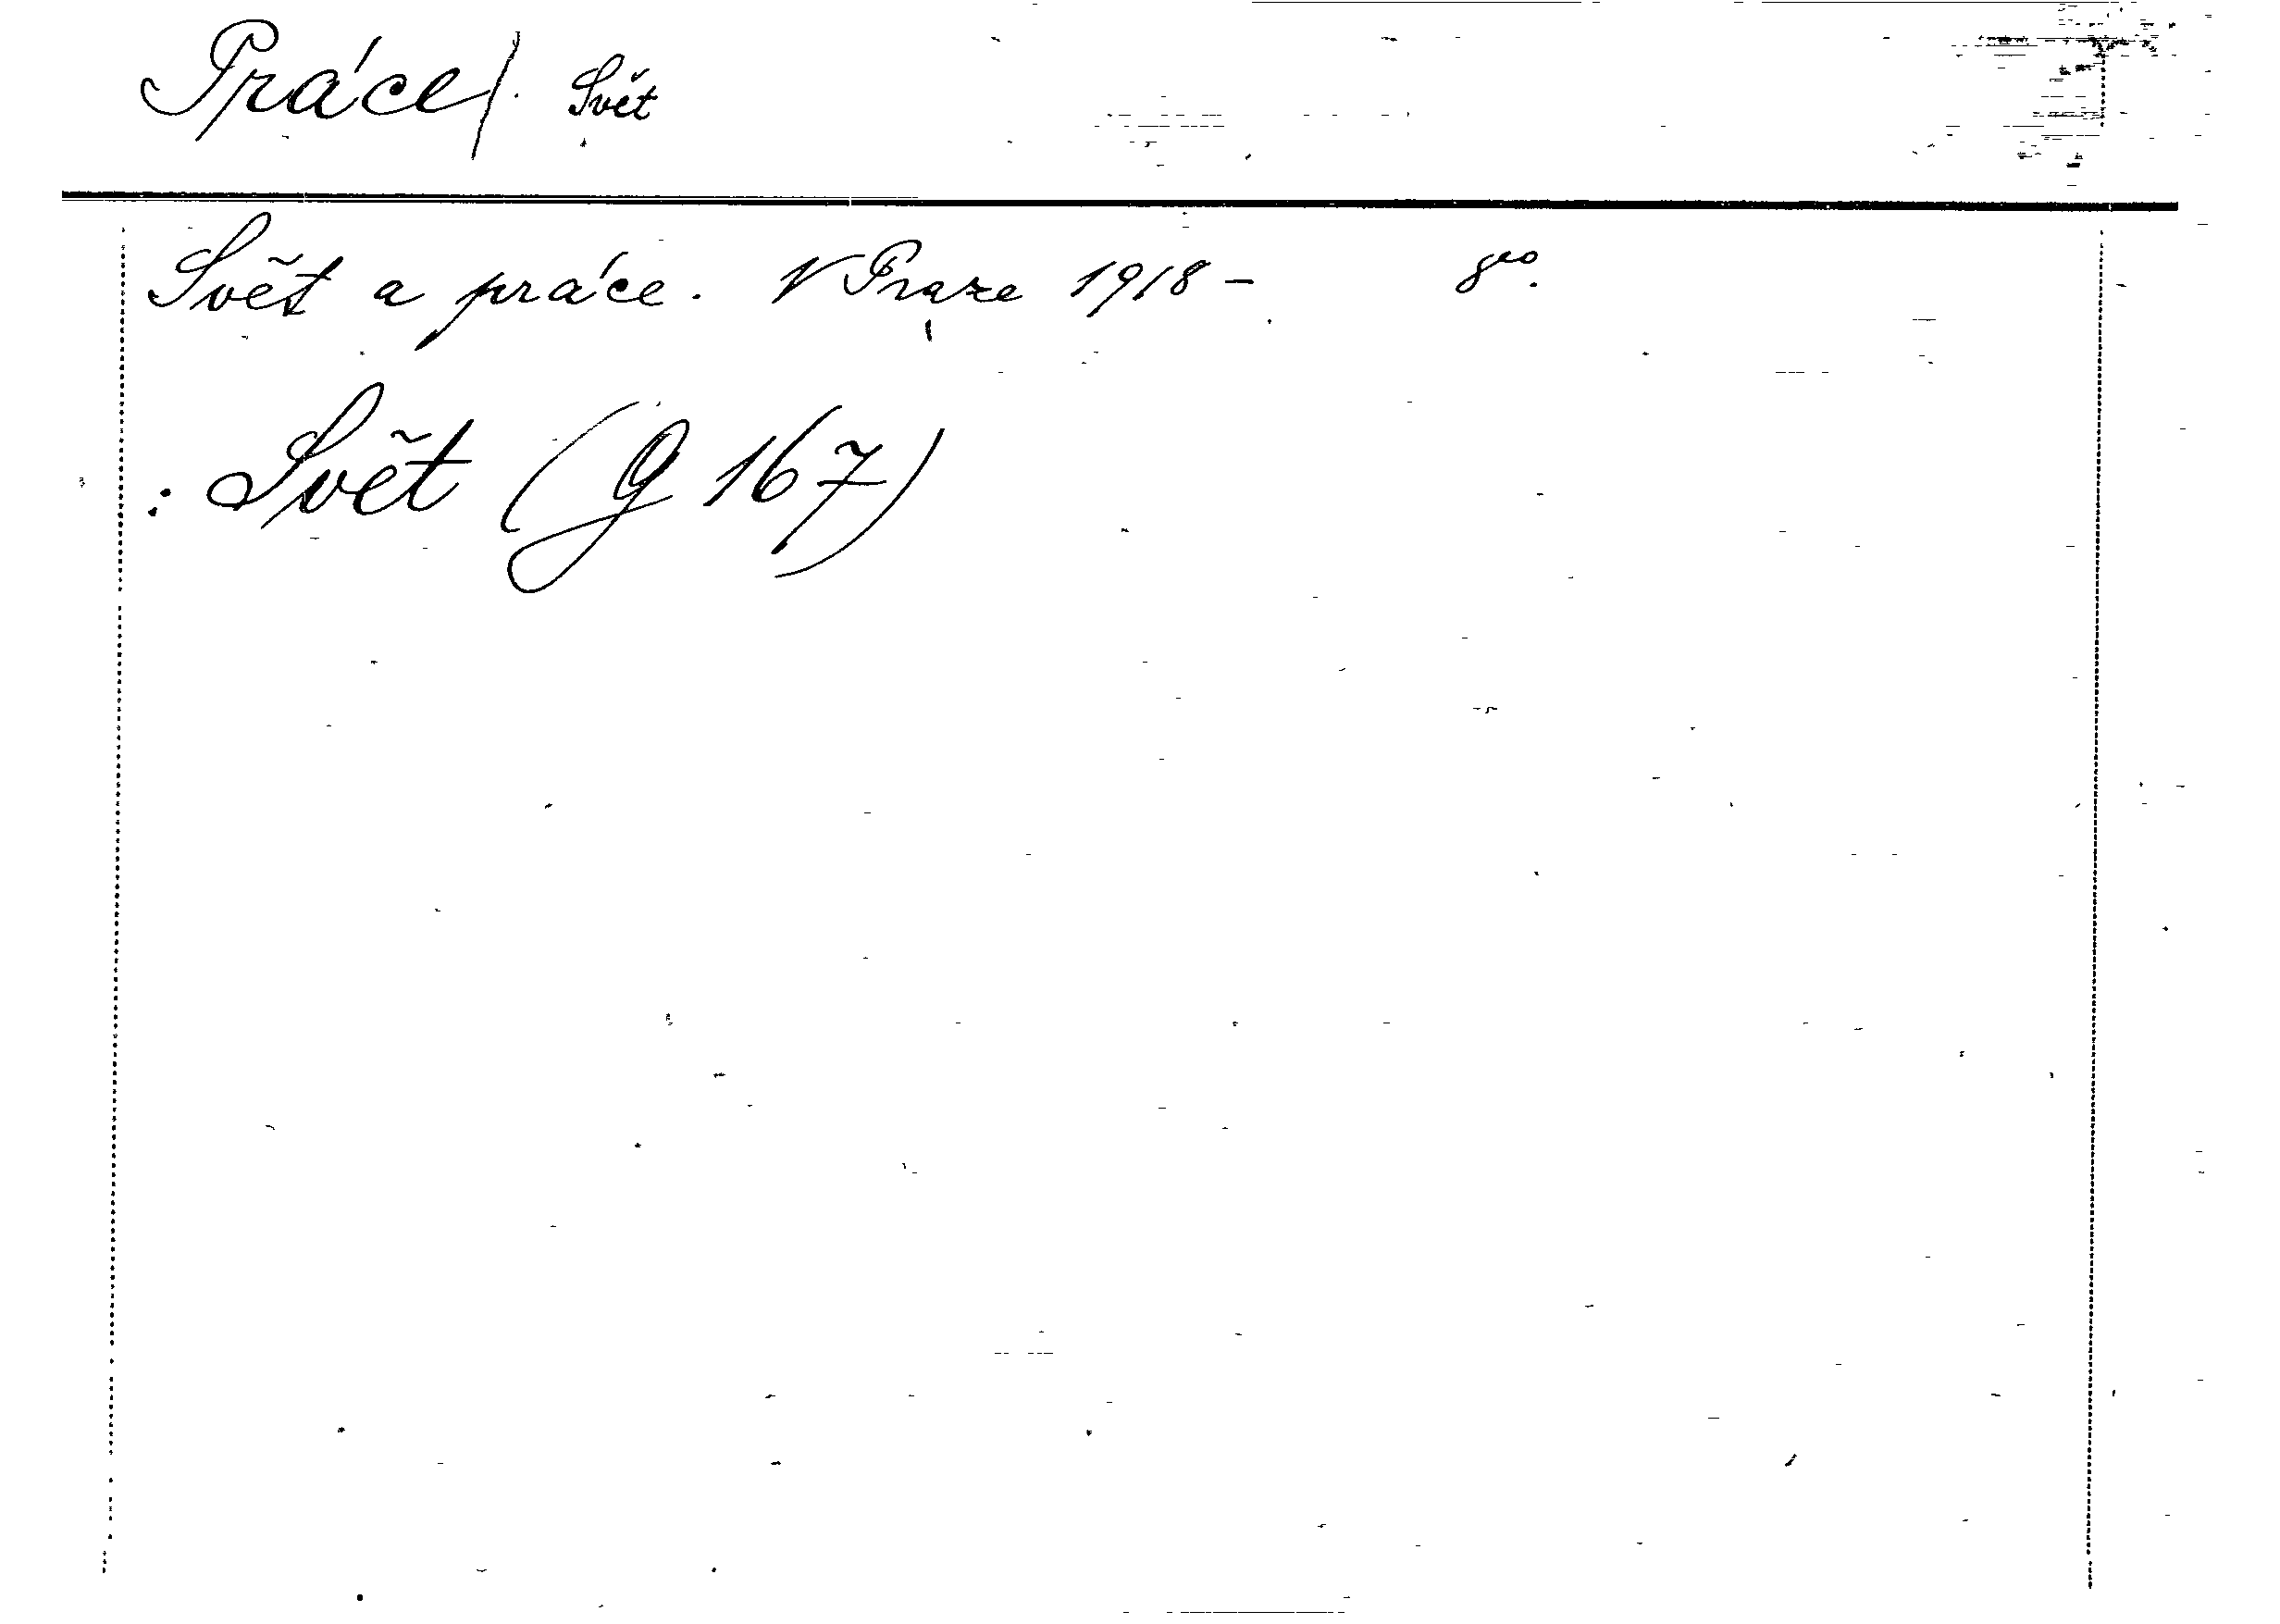 Práce/. Svět
Svět a práce. V Praze 1918 - 8vo.
: Svět (G 167)